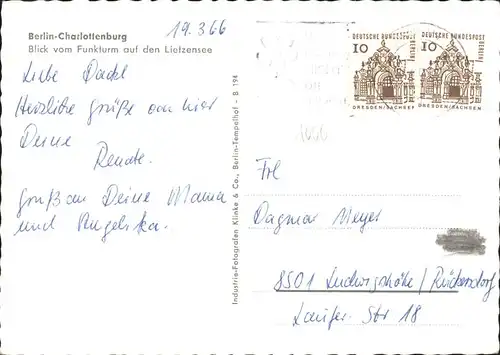 Berlin-Charlottenburg
Blick vom Funkturm auf den Lietzensee
19.3.66
Liebe Dackl
Herzliche Grüße von hier
Deine
Renate.
Gruß an Deine Mama
und Angelika.
Industrie-Fotografen Klinke & Co., Berlin-Tempelhof - B 194
DEUTSCHE BUNDESPOST
BERLIN
10
DRESDEN/SACHSEN
DEUTSCHE BUNDESPOST
BERLIN
10
DRESDEN/SACHSEN
Frl
Dagmar Meyer
8501 Ludwigshöhe/Rückersdorf
Laufer-Str 18